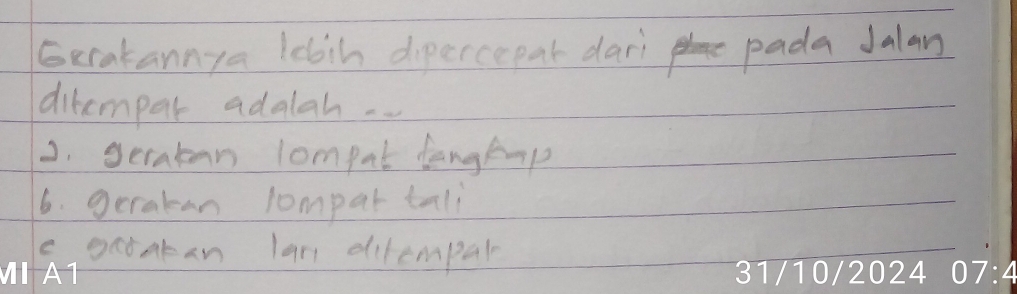 Gerakannya lebih dipercepat dari pada Jalan
ditempat adalah ...
a. gerakan lompat tangkap
b. gerakan lompat tali
c gerakan lari ditempat
MI A1
31/10/2024 07:4